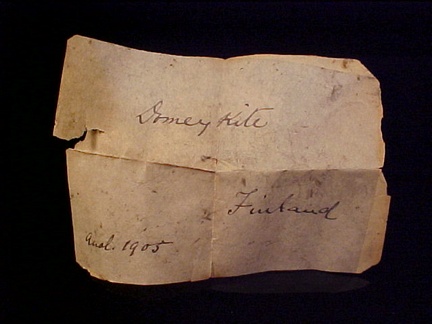 Domeykite
Finland
Anal. 1905